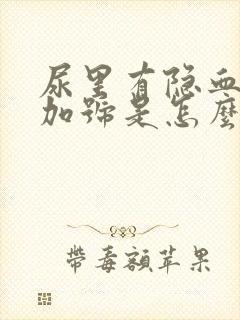 尿里有隐血
加號是怎麼
帶毒額苹果